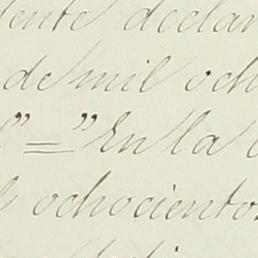 dente declar
de mil och
" = " En la
ochocientos